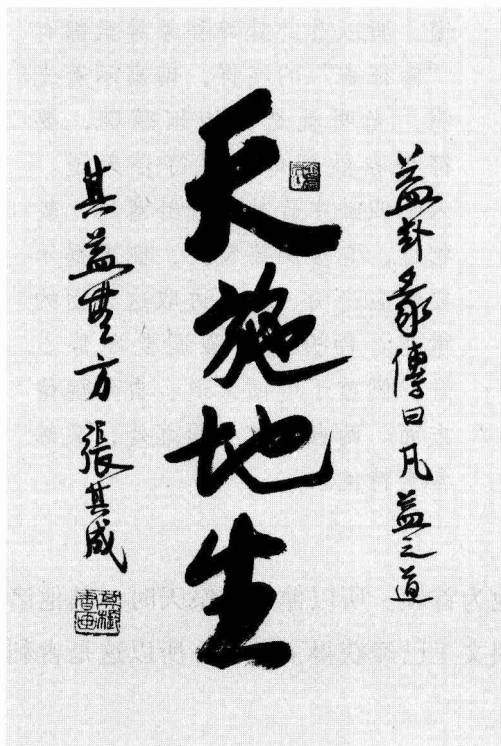 益卦彖傳曰凡益之道
天施地生
其益無方 張其成